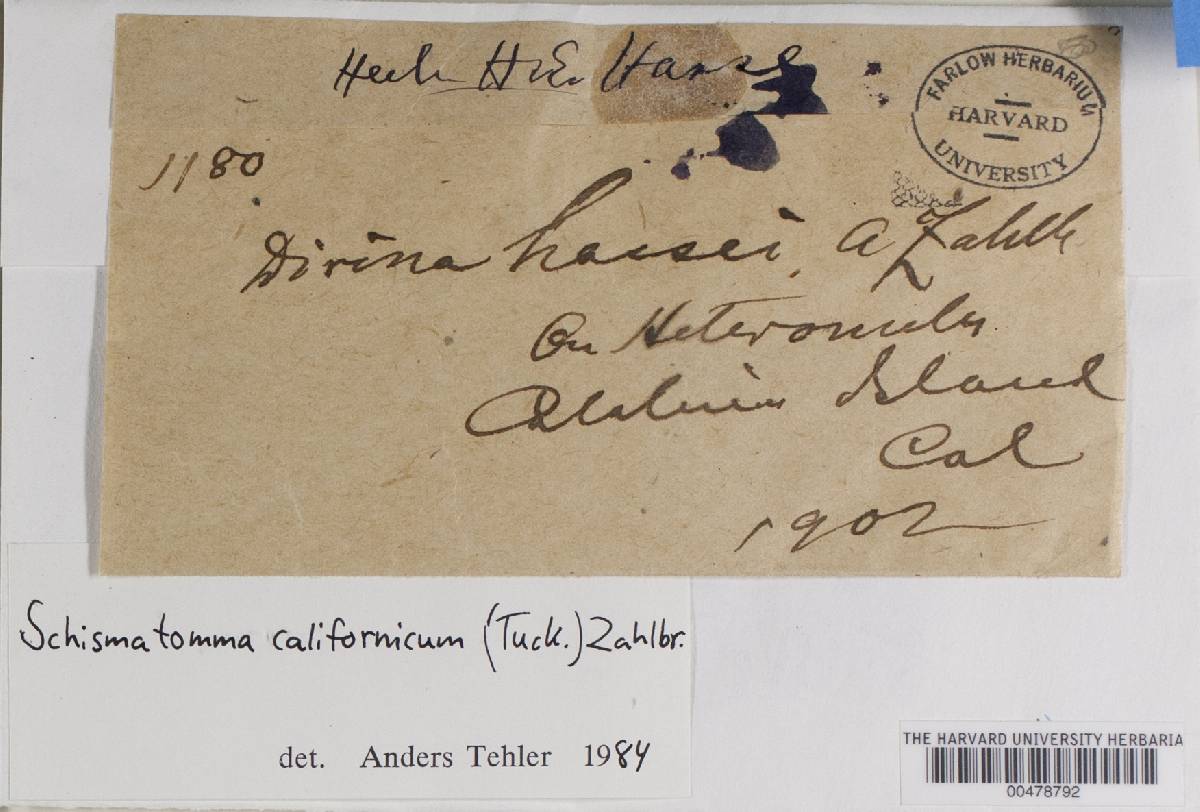 Herb H. E. Hasse
FARLOW HERBARIUM
HARVARD
UNIVERSITY
1180
Dirina hassei, A Zahlb
On Heteromeles
Catalina Island
Cal
1902
Schismatomma californicum (Tuck.) Zahlbr.
det. Anders Tehler 1984
THE HARVARD UNIVERSITY HERBARIA
00478792